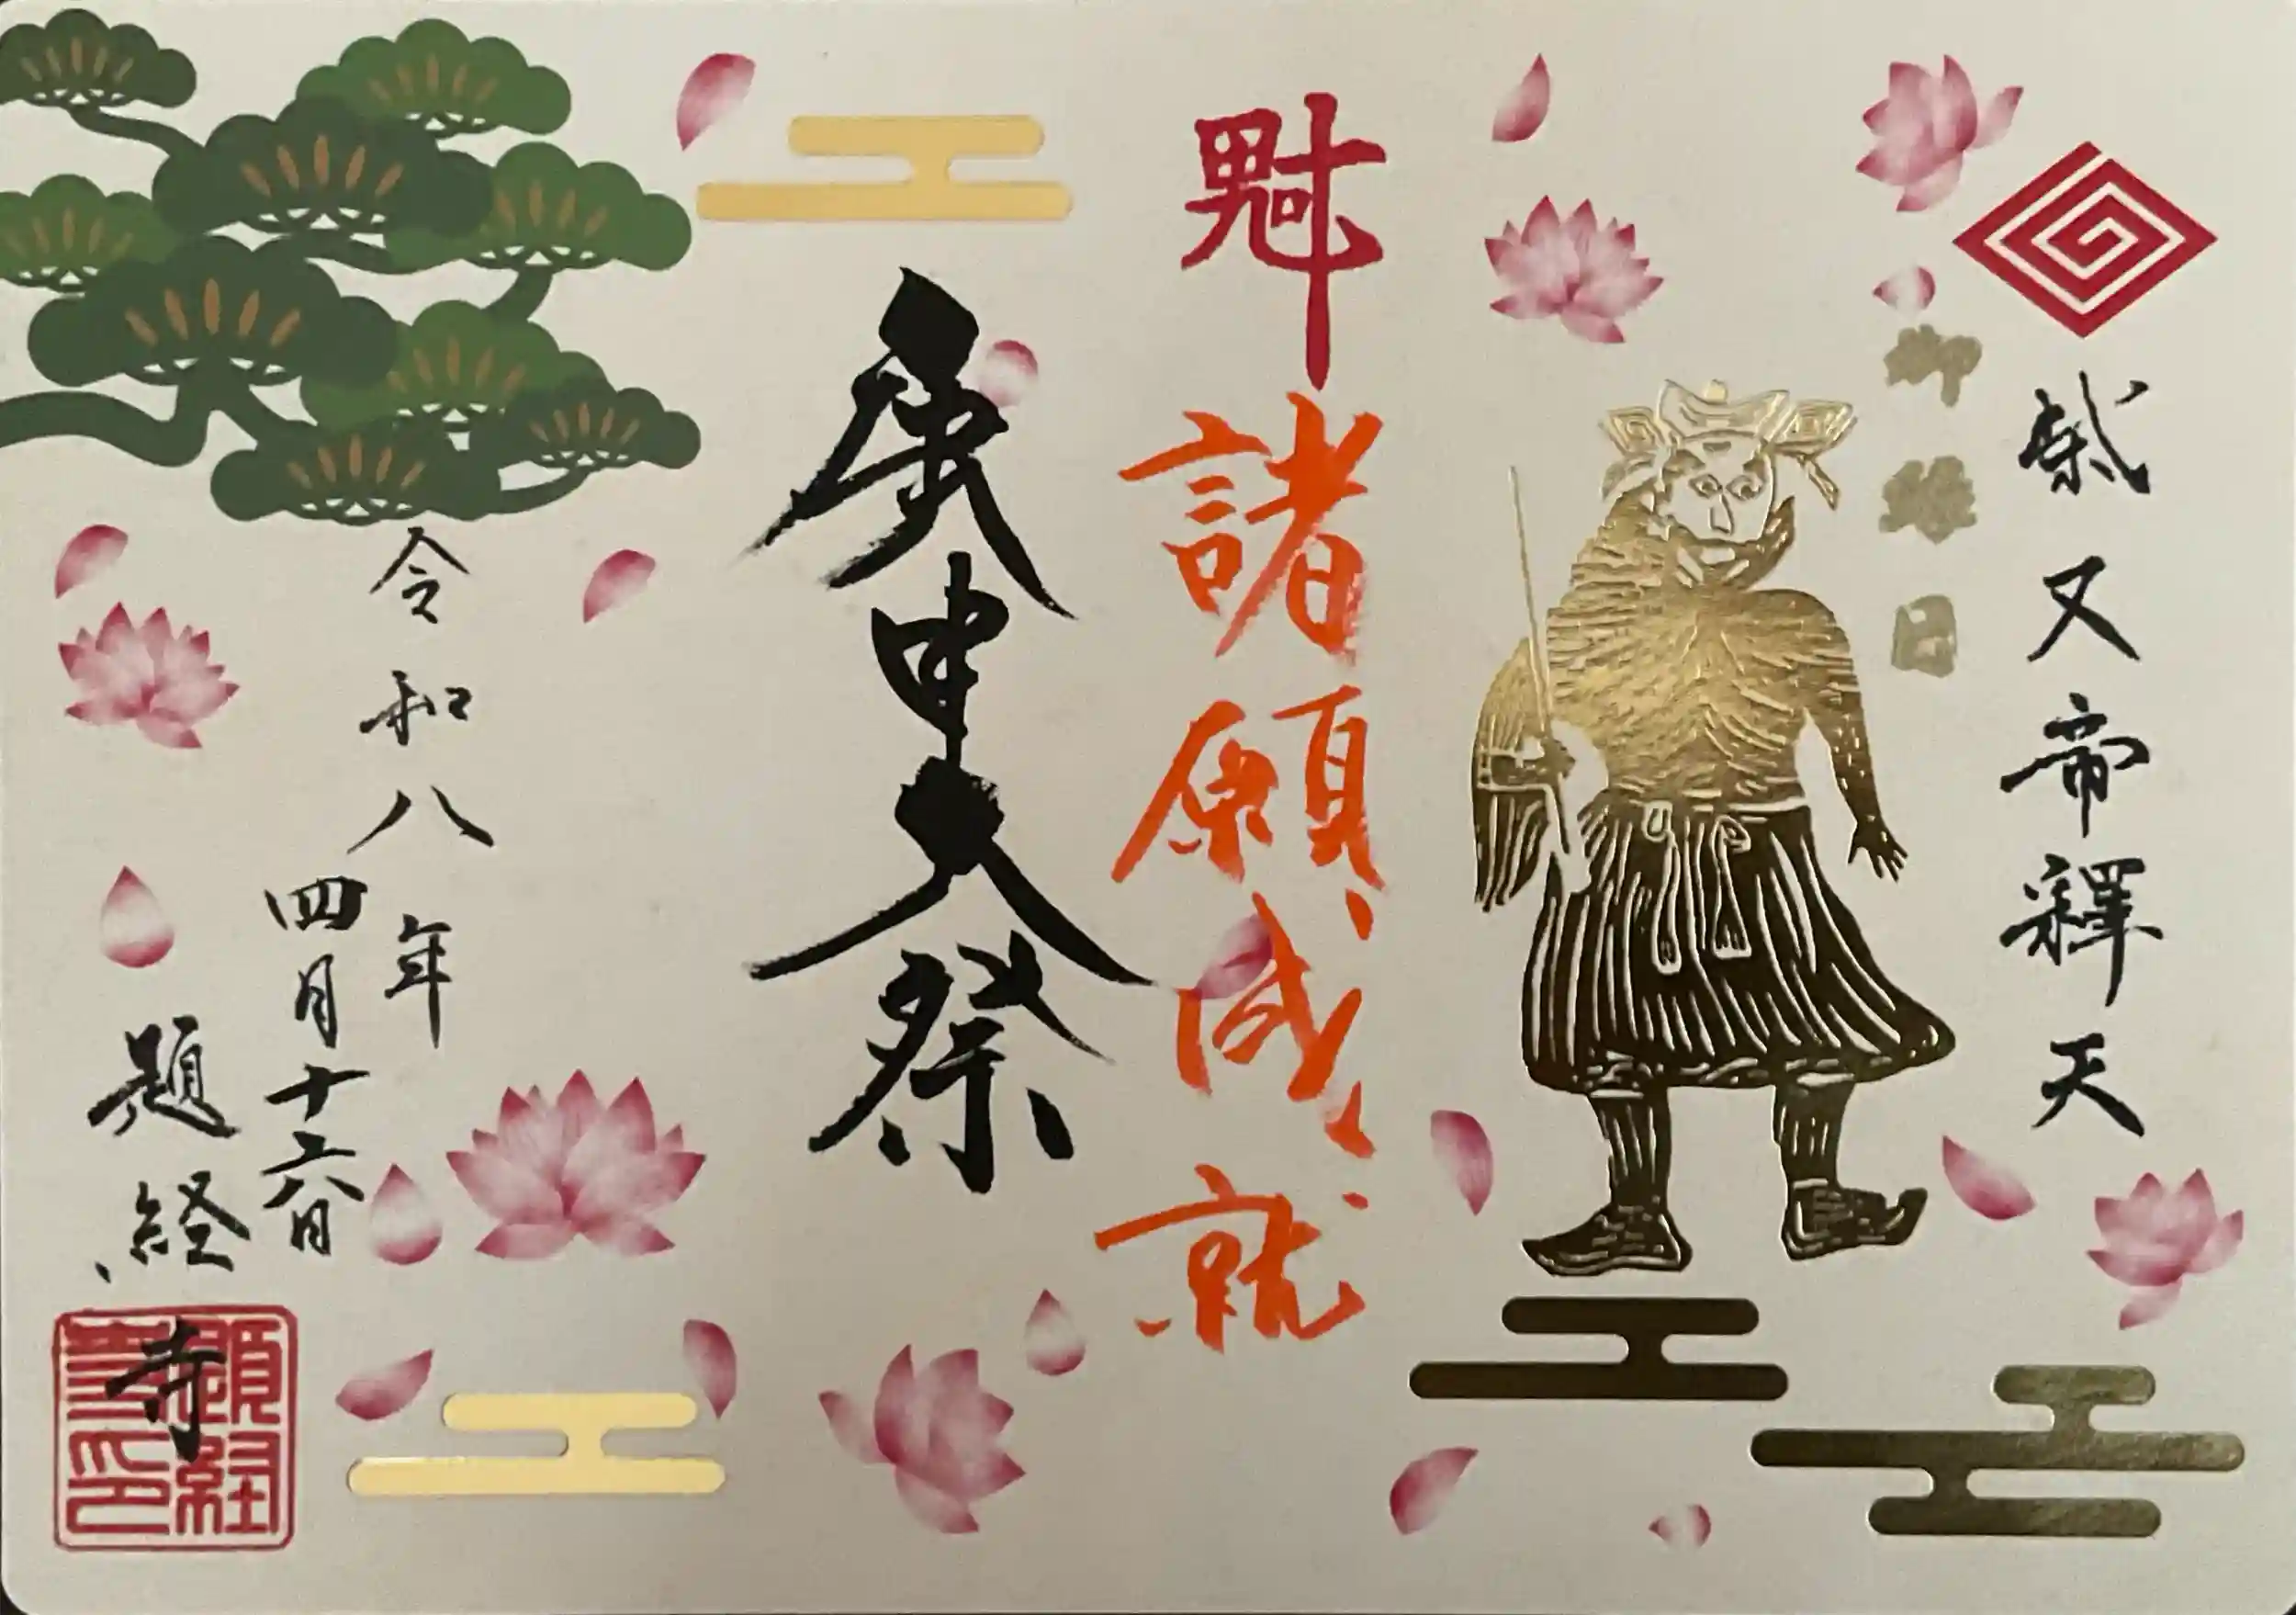 柴又帝釋天
御縁日
魁
諸願成就
庚申大祭
令和八年
四月十六日
題経寺